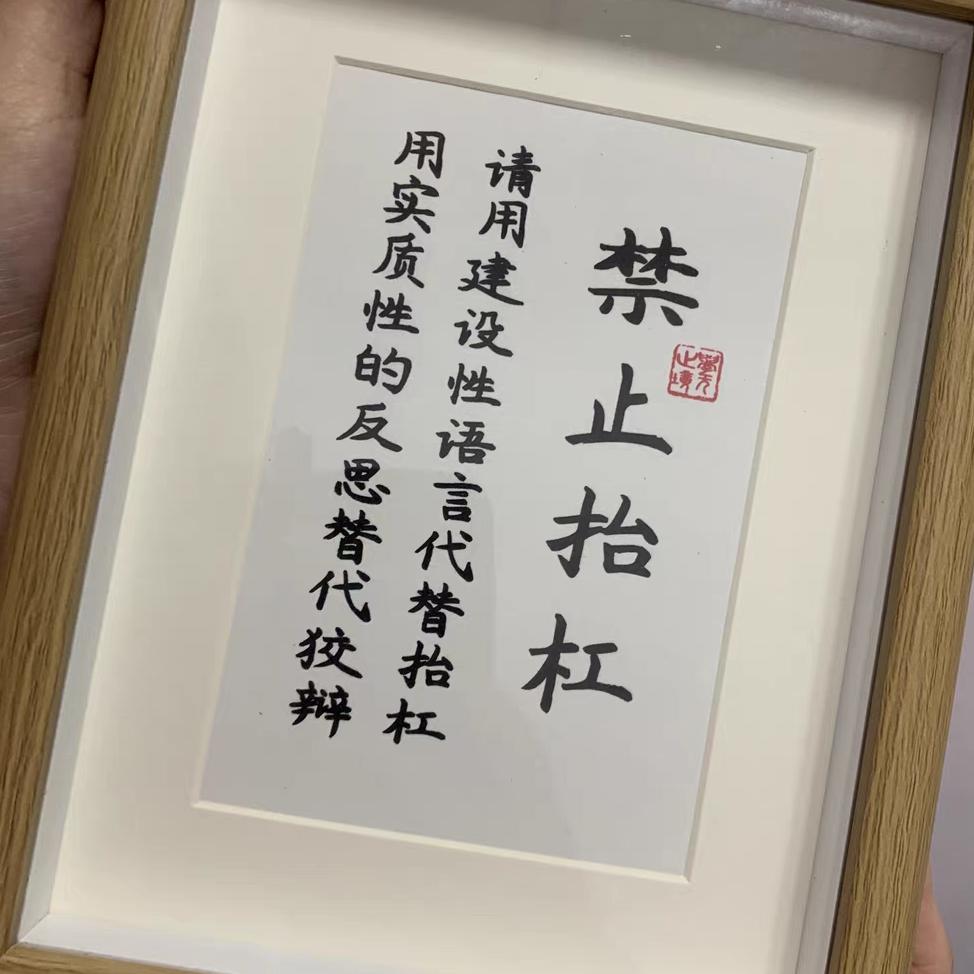 禁止抬杠
學无止境
请用建设性语言代替抬杠
用实质性的反思替代狡辩